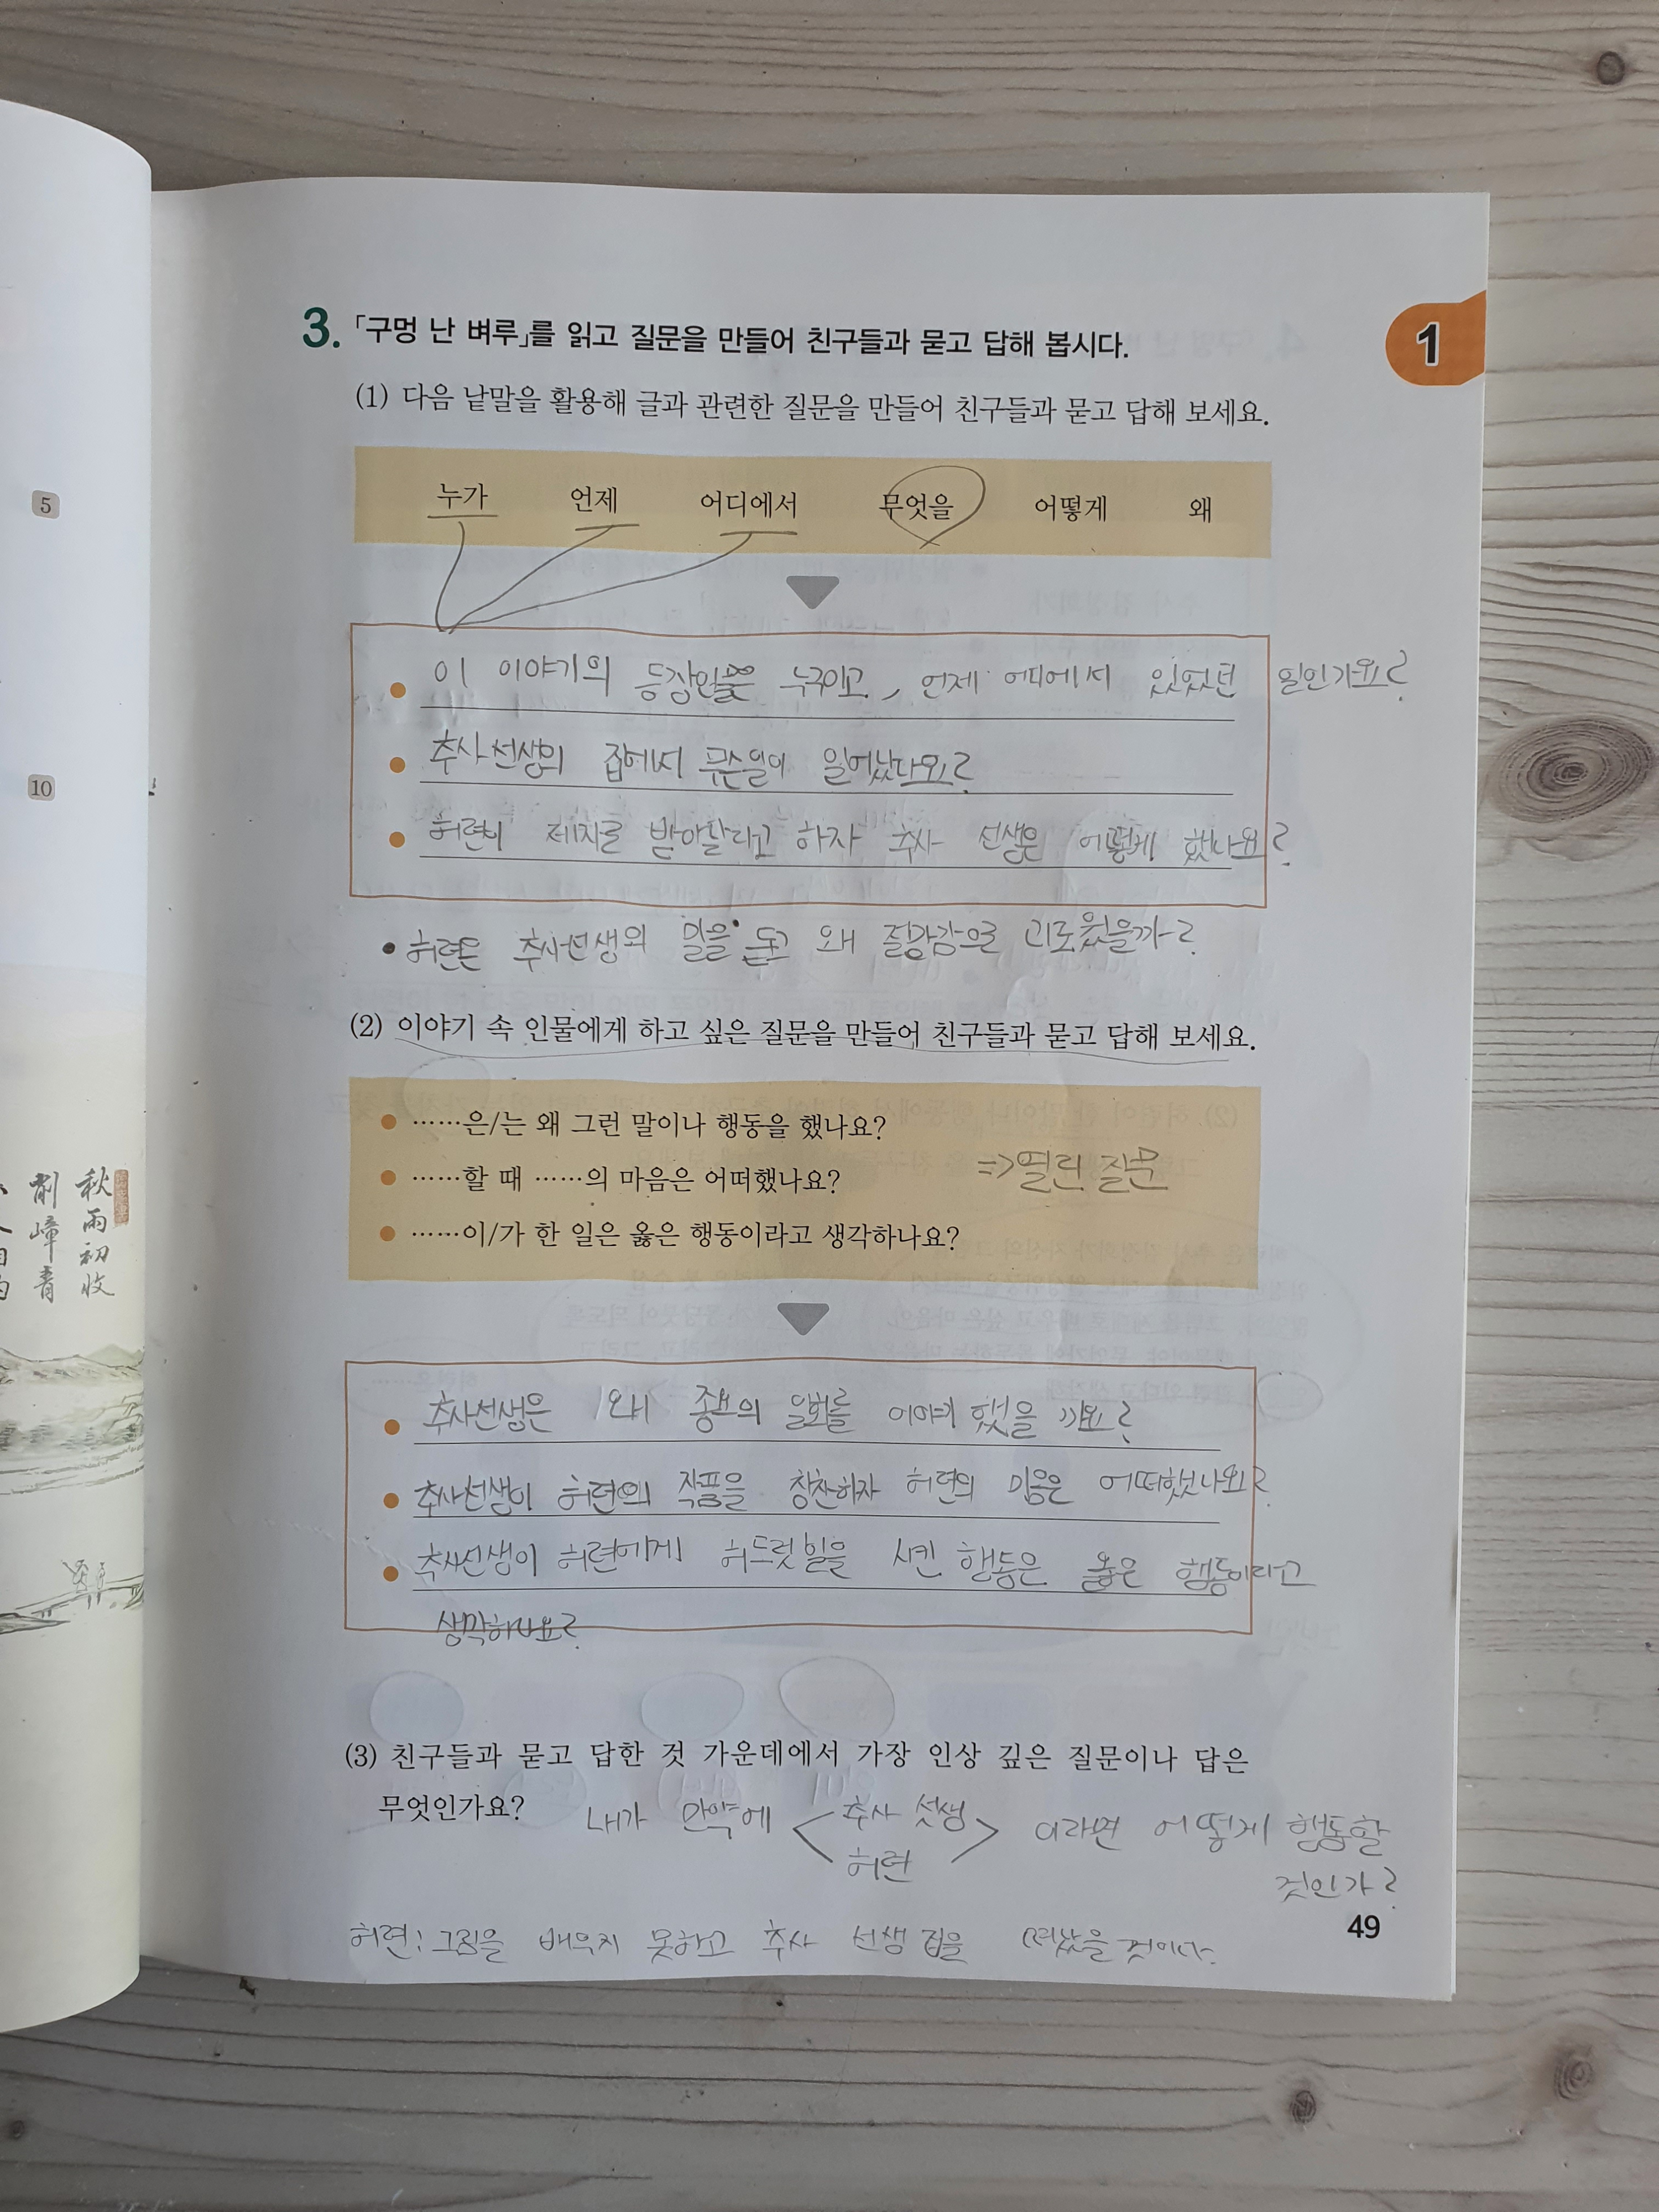 5
10
秋雨初收
削嶂青
3. 「구멍 난 벼루」를 읽고 질문을 만들어 친구들과 묻고 답해 봅시다.
1
(1) 다음 낱말을 활용해 글과 관련한 질문을 만들어 친구들과 묻고 답해 보세요.
누가 언제 어디에서 무엇을 어떻게 왜
이 이야기의 등장인물은 누구이고, 언제 어디에서 있었던 일인가요?
추사선생의 집에서 무슨일이 일어났나요?
허련이 제자로 받아달라고 하자 추사 선생은 어떻게 했나요?
• 허련은 추사선생의 말을 듣고 왜 절망감으로 괴로웠을까?
(2) 이야기 속 인물에게 하고 싶은 질문을 만들어 친구들과 묻고 답해 보세요.
……은/는 왜 그런 말이나 행동을 했나요?
……할 때 ……의 마음은 어떠했나요?
=>열린 질문
……이/가 한 일은 옳은 행동이라고 생각하나요?
추사선생은 왜 종요의 일화를 이야기 했을 까요?
추사선생이 허련의 작품을 칭찬하자 허련의 마음은 어떠했나요?
추사선생이 허련에게 허드렛일을 시킨 행동은 옳은 행동이라고
생각하나요?
(3) 친구들과 묻고 답한 것 가운데에서 가장 인상 깊은 질문이나 답은
무엇인가요?
내가 만약에 < 추사 선생 허련 > 이라면 어떻게 행동할
것인가?
49
허련: 그림을 배우지 못하고 추사 선생 집을 떠났을 것이다.